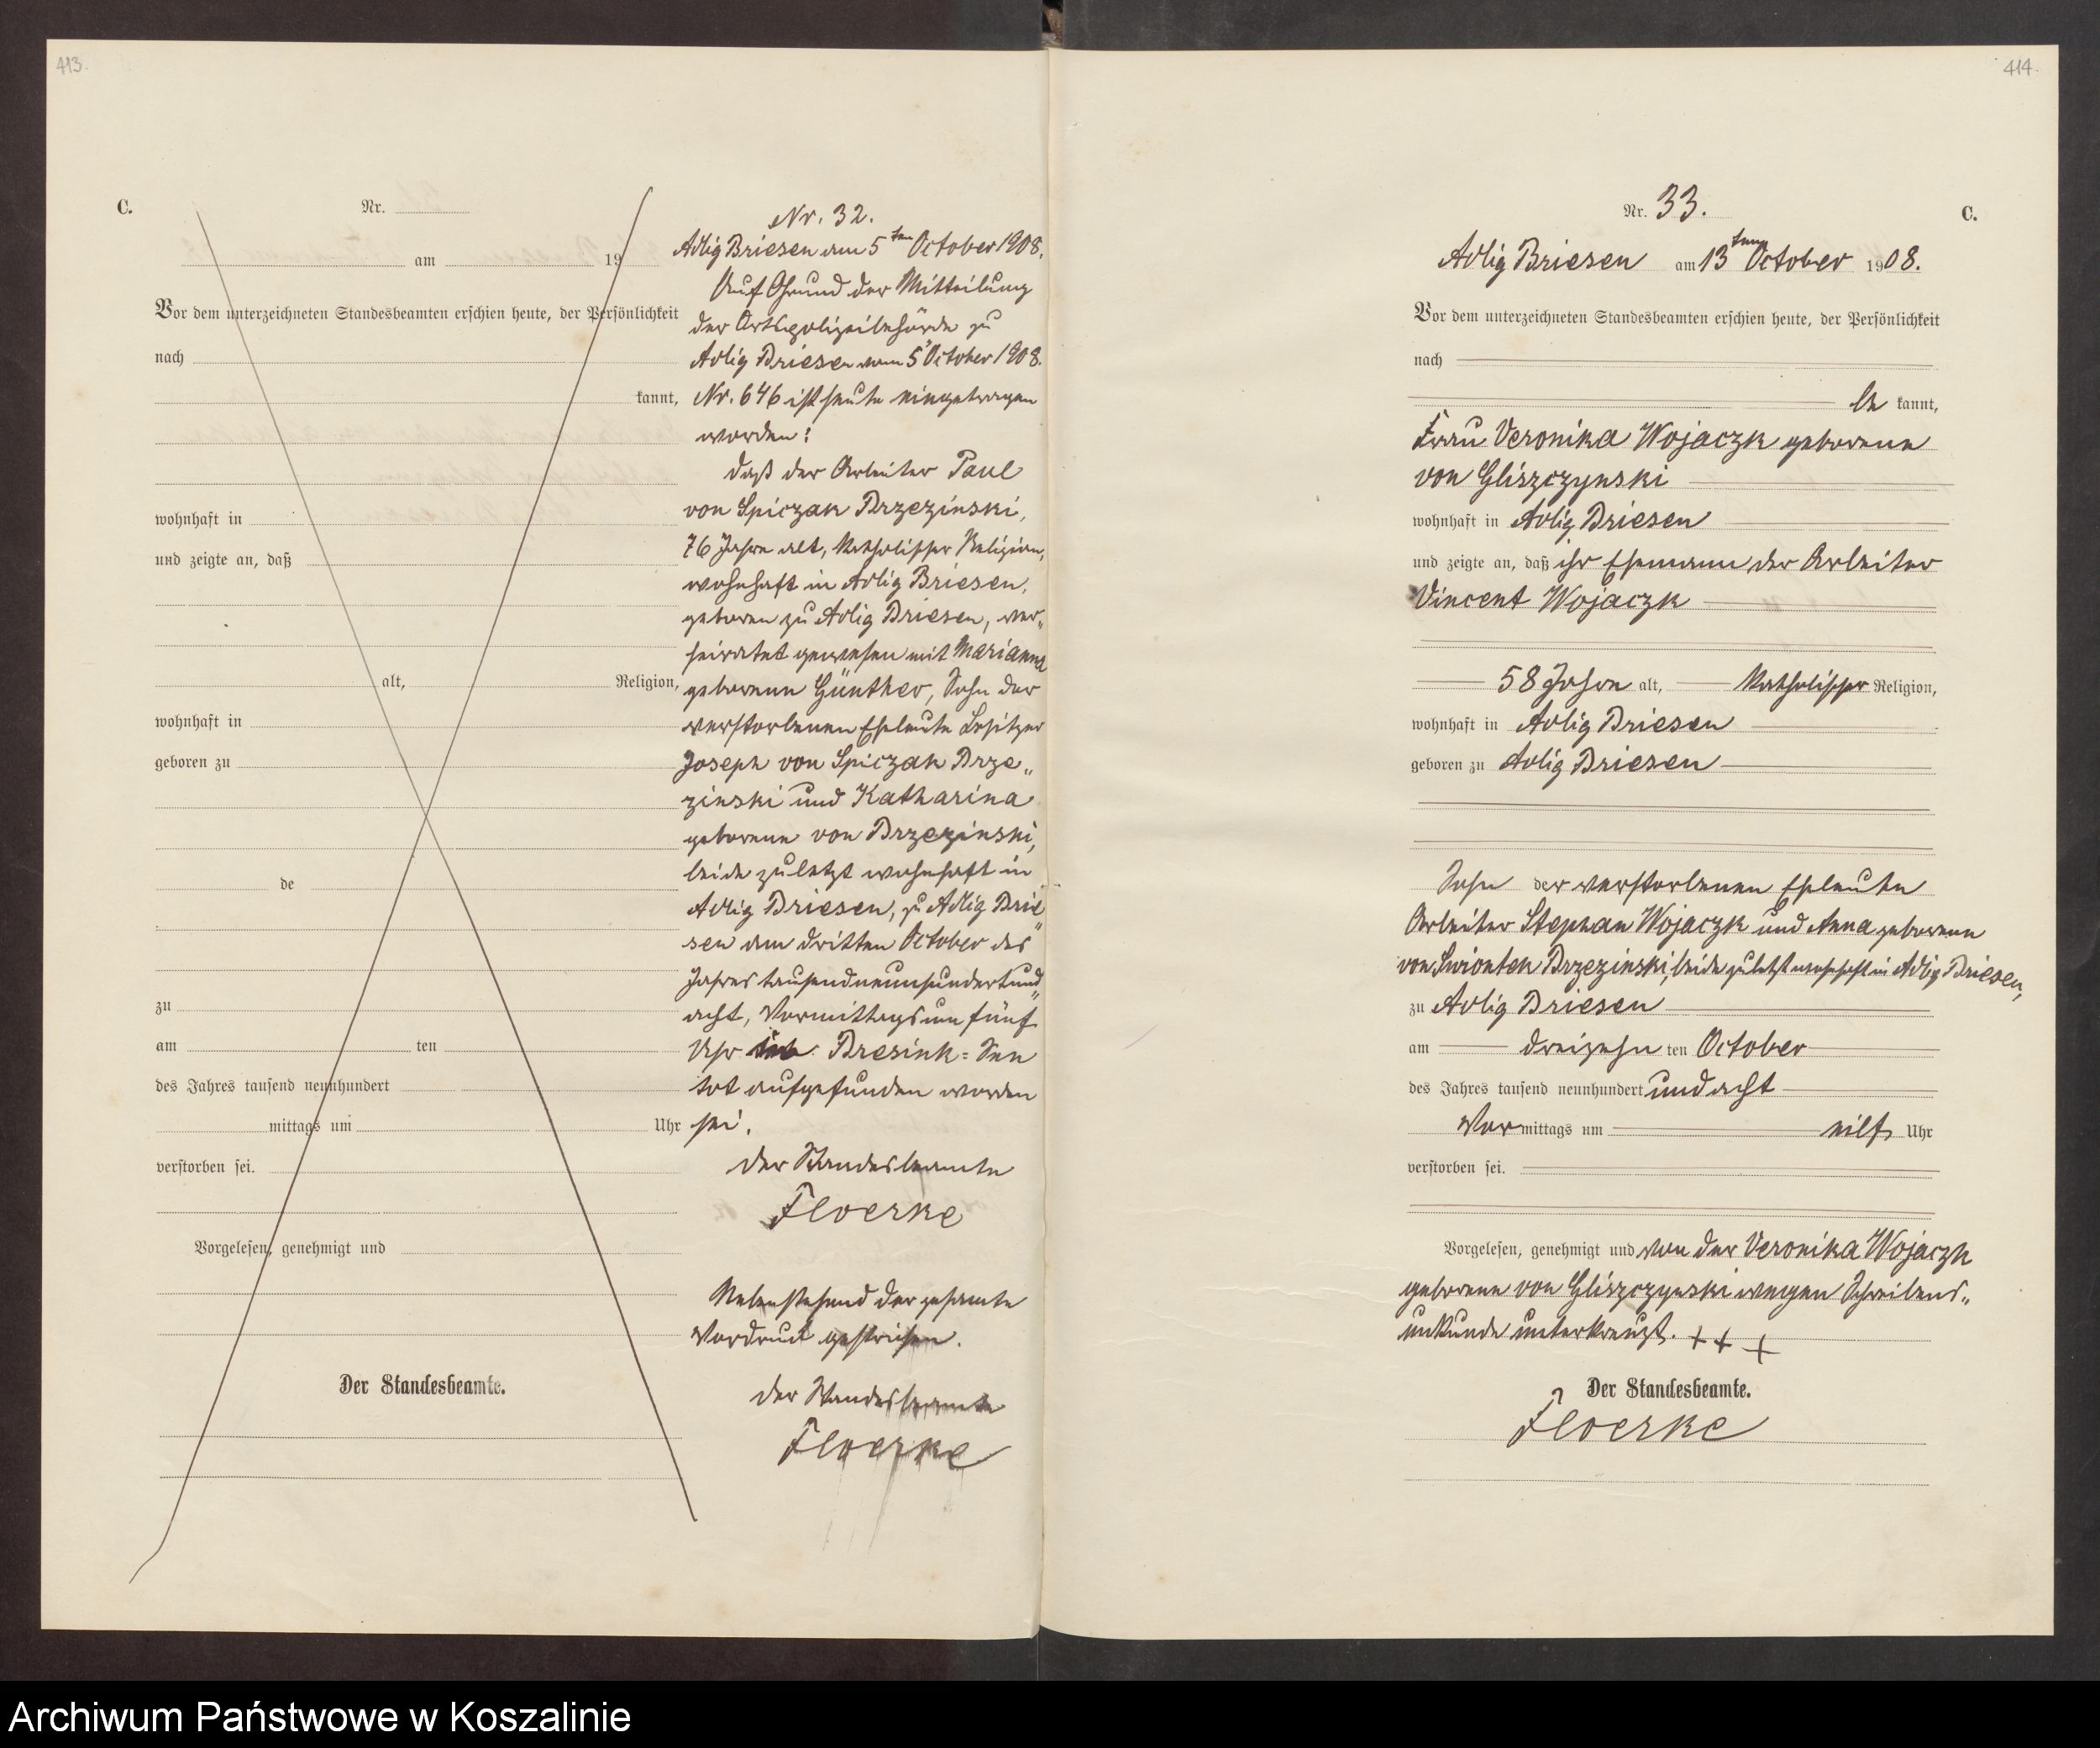 413.
C.
Nr.
am 19
Vor dem unterzeichneten Standesbeamten erschien heute, der Persönlichkeit
nach
kannt,
wohnhaft in
und zeigte an, daß
alt, Religion,
wohnhaft in
geboren zu
de
zu
am ten
des Jahres tausend neunhundert
mittags um Uhr
verstorben sei.
Vorgelesen, genehmigt und
Der Standesbeamte.
Nr. 32.
Adlig Briesen am 5ten October 1908.
Auf Grund der Mitteilung
der Ortspolizeibehörde zu
Adlig Briesen vom 5. October 1908.
Nr. 646 ist heute eingetragen
worden:
daß der Arbeiter Paul
von Spiczak Brzezinski,
76 Jahre alt, katholischer Religion,
wohnhaft in Adlig Briesen,
geboren zu Adlig Briesen, ver„
heiratet gewesen mit Marianna
geborenen Günther, Sohn der
verstorbenen Eheleute Besitzer
Joseph von Spiczak Brze„
zinski und Katharina
geborene von Brzezinski,
beide zuletzt wohnhaft in
Adlig Briesen, zu Adlig Brie„
sen am dritten October des
Jahres tausendneunhundertund„
acht, Vormittags um fünf
Uhr Bresink=See
tot aufgefunden worden
sei.
Der Standesbeamte
Floerke
Nebenstehend der gesamte
Vordruck gestrichen.
Der Standesbeamte
Floerke
414.
Nr. 33. C.
Adlig Briesen am 13ten October 1908.
Vor dem unterzeichneten Standesbeamten erschien heute, der Persönlichkeit
nach
be kannt,
Frau Veronika Wojaczk geborene
von Gliszczynski
wohnhaft in Adlig Briesen
und zeigte an, daß ihr Ehemann der Arbeiter
Vincent Wojaczk
58 Jahre alt, katholischer Religion,
wohnhaft in Adlig Briesen
geboren zu Adlig Briesen
Sohn der verstorbenen Eheleute
Arbeiter Stephan Wojaczk und Anna geborene
von Swiontek Brzezinski, beide zuletzt wohnhaft in Adlig Briesen,
zu Adlig Briesen
am dreizehn ten October
des Jahres tausend neunhundert und acht
Vor mittags um elf Uhr
verstorben sei.
Vorgelesen, genehmigt und von der Veronika Wojaczk
geborene von Gliszczynski wegen Schreibens„
unkunde unterkreuzt. + + +
Der Standesbeamte.
Floerke
Archiwum Państwowe w Koszalinie